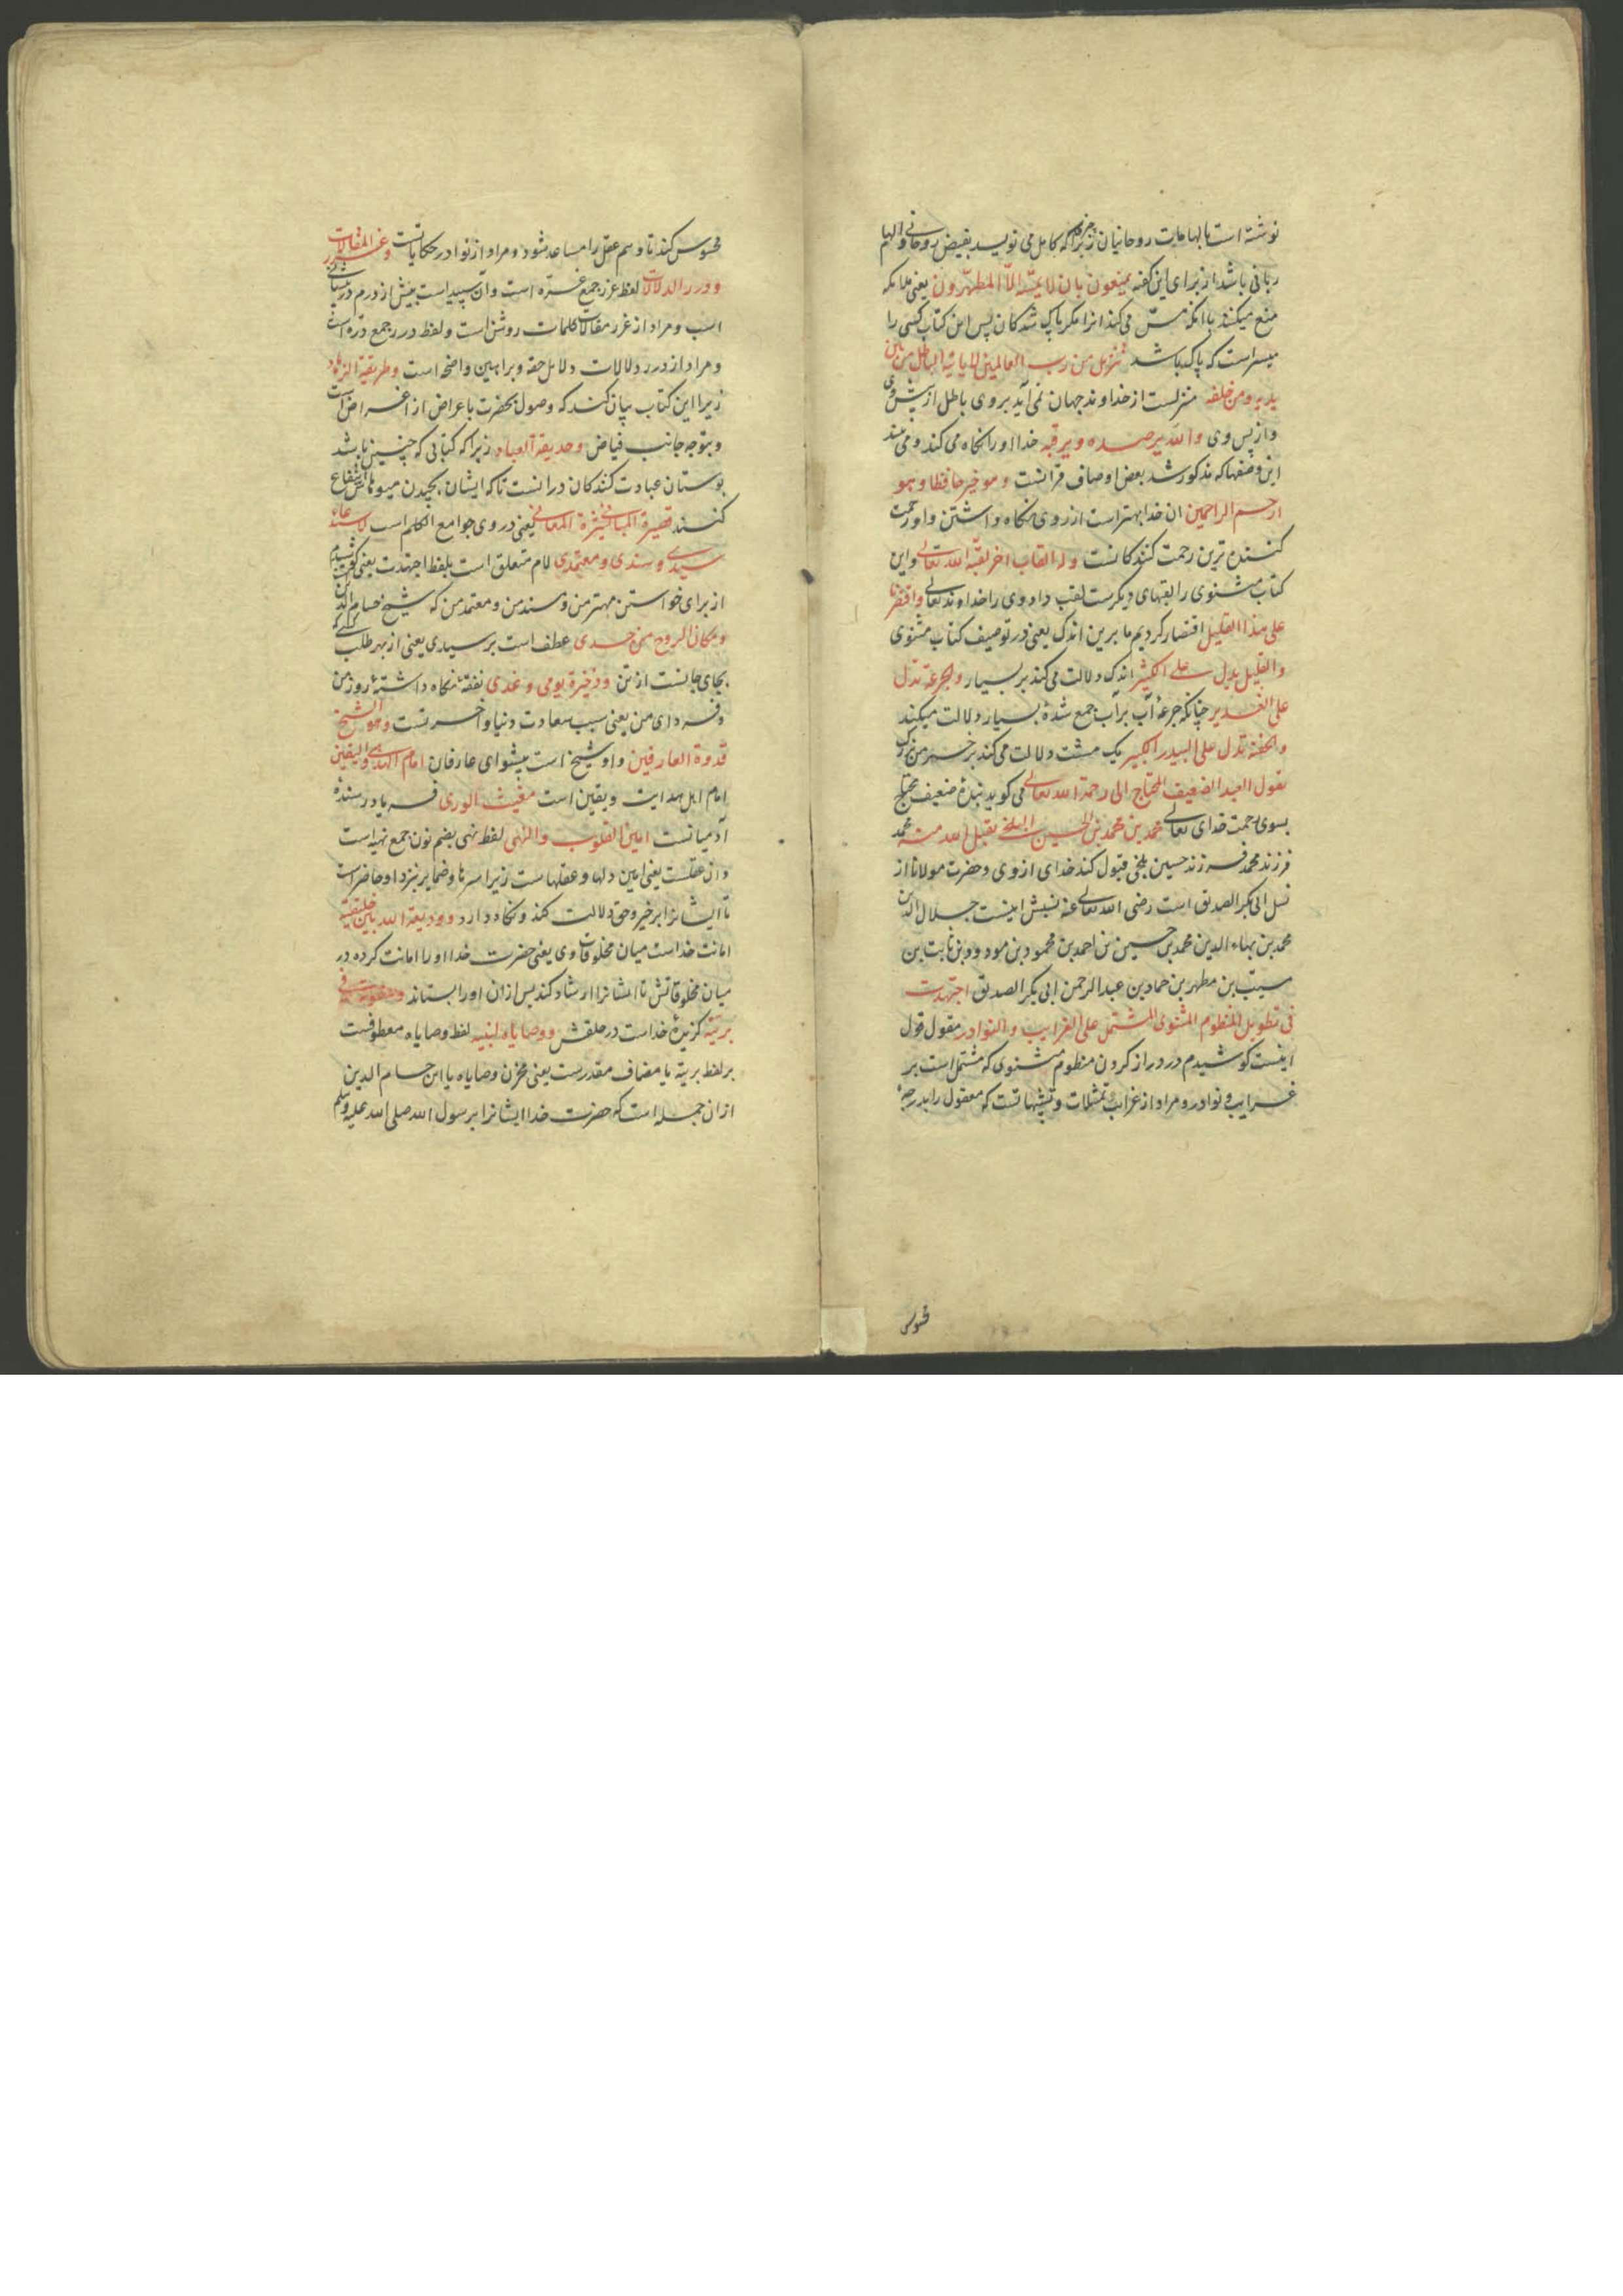 نوشته است بالهامات روحانیان زیرا که هرچه کامل می نویسد بفیض روحانی و الهام
ربانی باشد از برای این گفته یمنعون بان لا یمسّه الّا المطهّرون یعنی ملائکه
منع میکنند بآنکه مسّ می کند انرا مکر پاک شدکان پس این کتاب کسی را
میسر است که پاک باشد تنزیل من رب العالمین لا یاتیه الباطل من بین
یدیه و من خلفه منزلست از خداوند جهان نمی آید بروی باطل از پیش وی
و از پس وی و الله یرصده و یرقبه خدا او را نکاه می کند و می بیند
این وصفها که مذکور شد بعض اوصاف قرانست و هو خیر حافظا و هو
ارحم الراحمین ان خدا بهتر است از روی نکاه داشتن و او رحمت
کننده ترین رحمت کنندکانست و له القاب اخر لقبه الله تعالی و این
کتاب مثنوی را لقبهای دیکرست لقب داد وی را خداوند تعالی و اقتصرنا
علی هذا القلیل اقتصار کردیم ما برین اندک یعنی در توصیف کتاب مثنوی
و القلیل یدل علی الکثیر اندک دلالت می کند بر بسیار و الجرعة تدل
علی الغدیر چنانکه جرعهٔ آب برآب جمع شدهٔ بسیار دلالت میکند
و الحفنة تدل علی البیدر الکبیر یک مشت دلالت می کند بر خرمن بزرک
یقول العبد الضعیف المحتاج الی رحمة الله تعالی می کوید بندهٔ ضعیف محتاج
بسوی رحمت خدای تعالی محمد بن محمد بن الحسین البلخی تقبل الله منه محمد
فرزند محمد فرزند حسین بلخی قبول کند خدای از وی و حضرت مولانا از
نسل ابی بکر الصدیق است رضی الله تعالی عنه نسبش اینست جلال الدین
محمد بن بهاء الدین محمد بن حسین بن احمد بن محمود بن مودود بن ثابت بن
مسیّب بن مطهر بن حماد بن عبد الرحمن ابی بکر الصدیق اجتهدت
فی تطویل المنظوم المثنوی المشتمل علی الغرایب و النوادر مقول قول
اینست کوشیدم در دراز کردن منظوم مثنوی که مشتمل است بر
غرایب و نوادر و مراد از غرایب تمثیلات و تشبیهاتست که معقول را بدرجهٔ
محسوس
محسوس کند تا وهم عقل را مساعد شود و مراد از نوادر حکایاتست و غرر المقالات
و درر الدلالات لفظ غرر جمع غرّه است و آن سپیدیست بیش از درم در پیشانی
اسب و مراد از غرر مقالات کلمات روشن است و لفظ درر جمع درّه است
و مراد از درر دلالات دلایل حقه و براهین واضحه است و طریقة الزهاد
زیرا این کتاب بیان کند که وصول بحضرت باعراض از اغراض است
و بتوجه جانب فیاض و حدیقة العباد زیرا که کتابی که چنین باشد
بوستان عبادت کنندکان درانست تا که ایشان بچیدن میوهاش انتفاع
کنند قصیرة المبانی کثیرة المعانی یعنی در وی جوامع الکلم است لاستدعاء
سیدی و سندی و معتمدی لام متعلق است بلفظ اجتهدت یعنی کوشیدم
از برای خواستن مهتر من و سند من و معتمد من که شیخ حسام الدین
و مکان الروح من جسدی عطف است بر سیدی یعنی از بهر طلب کسی که
بجای جانست از تن و ذخیرة یومی و غدی نفقهٔ نکاه داشتهٔ روز من
و فردای من یعنی سبب سعادت دنیا و آخرتست و هو الشیخ
قدوة العارفین و او شیخ است پیشوای عارفان امام الهدی و الیقین
امام اهل هدایت و یقین است مغیث الوری فریاد رسندهٔ
آدمیانست امین القلوب و النهی لفظ نهی بضم نون جمع نهیه است
و ان عقلست یعنی امین دلها و عقلهاست زیرا سرها و ضمایر نزد او حاضر است
تا ایشانرا بر خیر و حق دلالت کند و نکاه دارد و ودیعة الله بین خلیقته
امانت خداست میان مخلوقات وی یعنی حضرت خدا او را امانت کرده در
میان مخلوقاتش تا ایشانرا ارشاد کند پس ازان او را بستاند و صفوته فی
بریته کزیدهٔ خداست در خلقش و وصایاه لنبیه لفظ وصایاه معطوفست
بر لفظ بریته یا مضاف مقدرست یعنی مخزن وصایاه یا این حسام الدین
ازان جمله است که حضرت خدا ایشانرا برسول الله صلی الله علیه و سلم